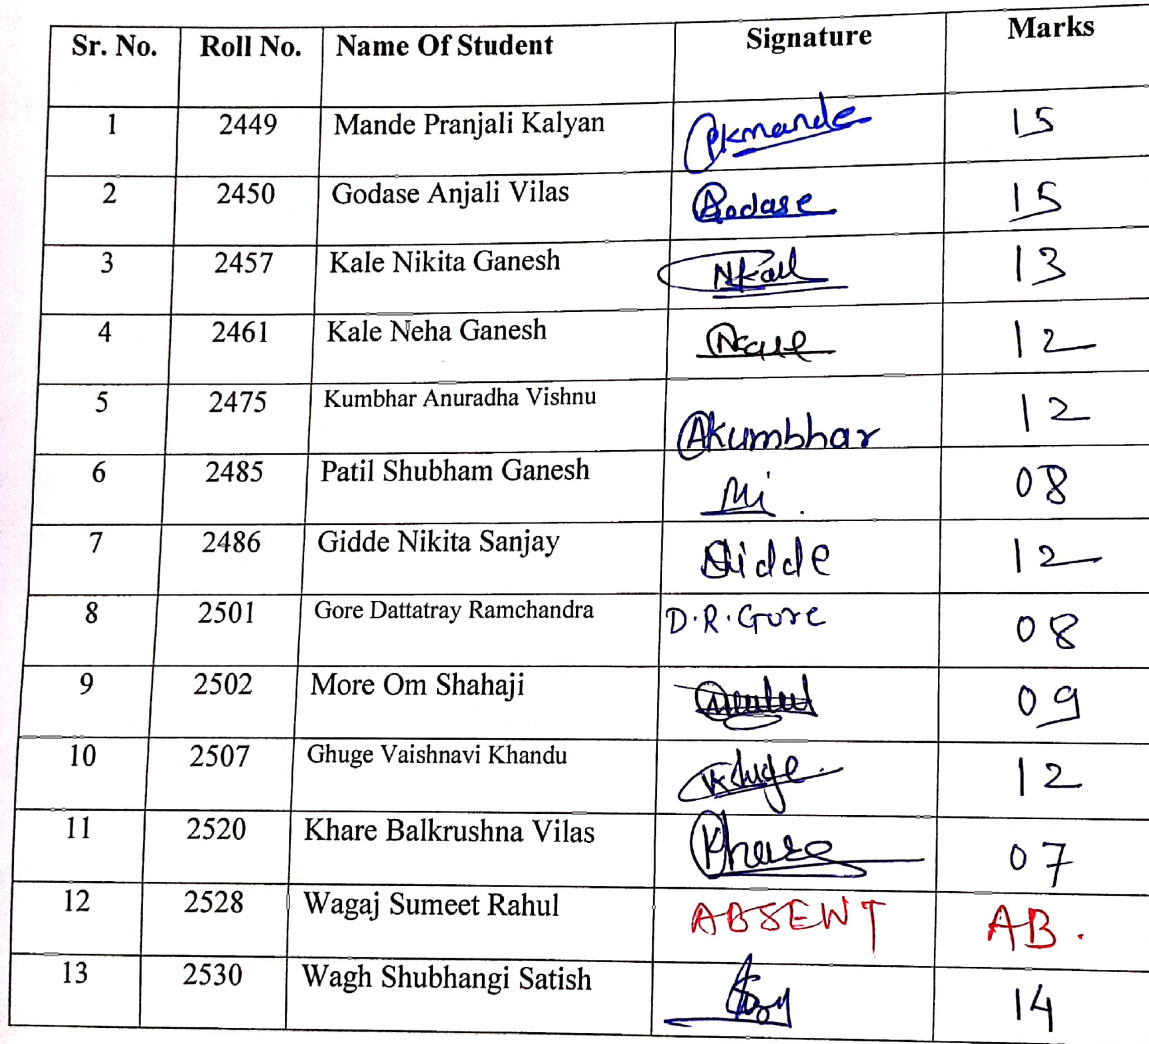 Sr. No. Roll No. Name Of Student Signature Marks
1 2449 Mande Pranjali Kalyan Pkmande 15
2 2450 Godase Anjali Vilas Godase 15
3 2457 Kale Nikita Ganesh 13
4 2461 Kale Neha Ganesh 12
5 2475 Kumbhar Anuradha Vishnu Akumbhar 12
6 2485 Patil Shubham Ganesh 08
7 2486 Gidde Nikita Sanjay Gidde 12
8 2501 Gore Dattatray Ramchandra D.R.Gore 08
9 2502 More Om Shahaji 09
10 2507 Ghuge Vaishnavi Khandu 12
11 2520 Khare Balkrushna Vilas Khare 07
12 2528 Wagaj Sumeet Rahul ABSENT AB.
13 2530 Wagh Shubhangi Satish 14